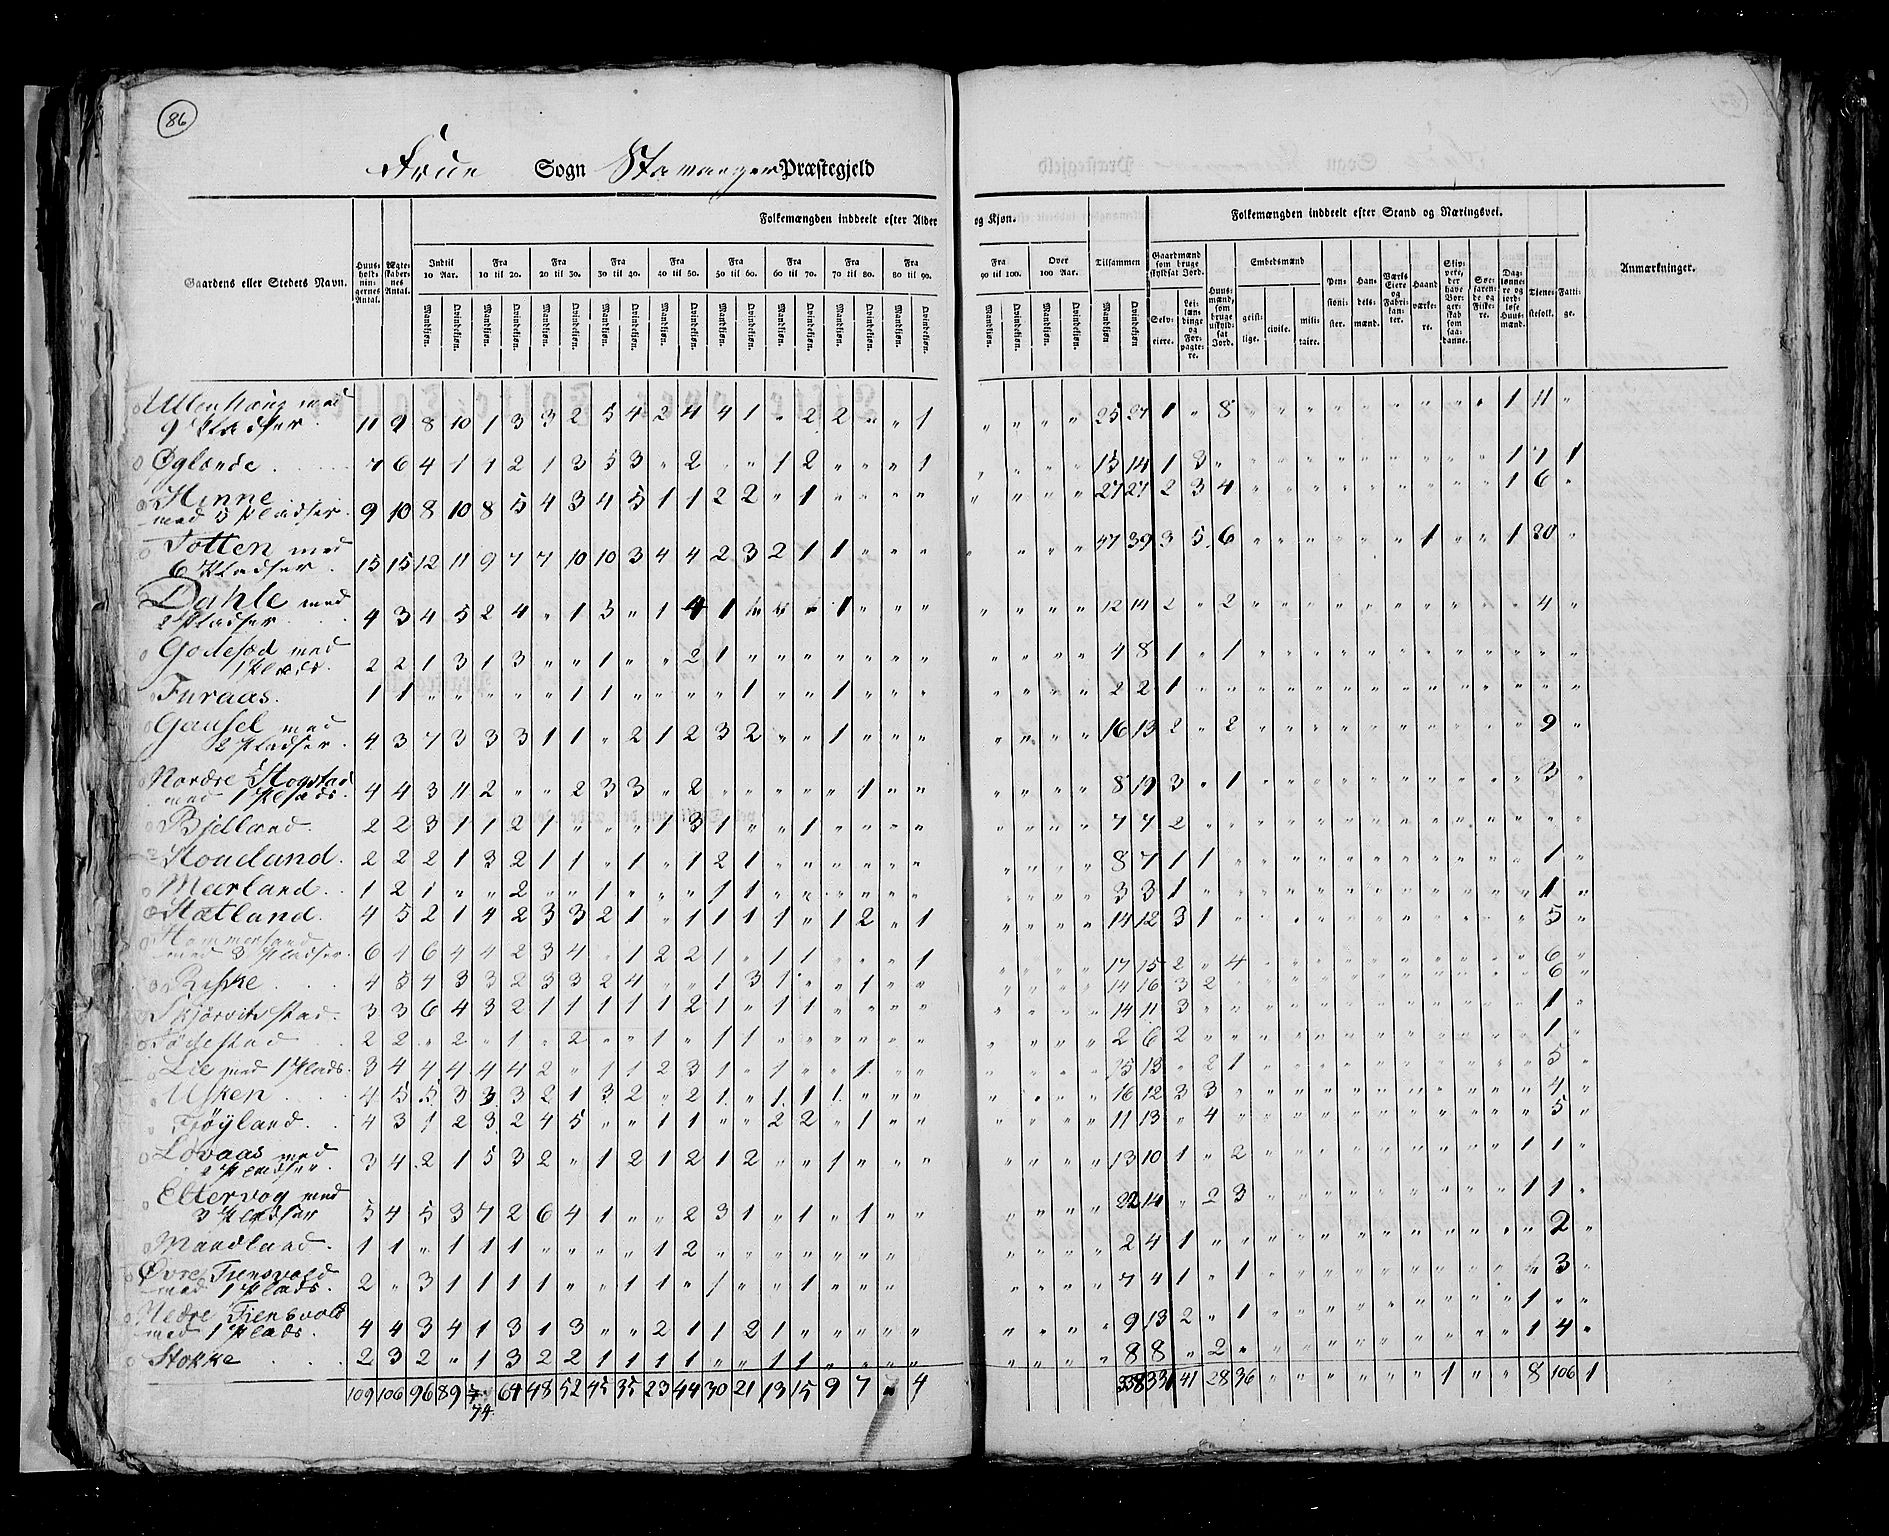 86
Frue Sogn Stavanger Præstegjeld
Gaardens eller Stedets Navn.
Huus-holdningernes Antal.
Ægteskabernes Antal.
Folkemængden inddeelt efter Alder og Kjøn.
Indtil 10 Aar.
Fra 10 til 20.
Fra 20 til 30.
Fra 30 til 40.
Fra 40 til 50.
Fra 50 til 60.
Fra 60 til 70.
Fra 70 til 80.
Fra 80 til 90.
Fra 90 til 100.
Over 100 Aar.
Tilsammen
Mandkjøn. Qvindekjøn.
Folkemængden inddeelt efter Stand og Næringsvei.
Gaardmænd som bruge skyldsat Jord.
Selveiere.
Leilændinge og Forpagtere.
Huusmænd, som bruge uskyldsat Jord.
Embedsmænd
geistlige. civile. militaire.
Pensionister.
Handelsmænd.
Værks Eiere og Fabrikanter.
Haandværkere.
Skippere, der have Borgerskab som saadanne.
Søefarende og Fiskere.
Daglønnere og jordløse Huusmænd.
Tjenestefolk.
Fattige.
Anmærkninger.
Ullenhoug med
9 Pladser 11 9 8 10 1 3 3 2 5 4 2 4 4 1 " 2 2 " " 1 " " " " 25 27 1 " 8 1 11 "
Øglænde 7 6 4 1 1 2 1 3 5 3 " 2 " " 1 2 " " " 1 " " " " 13 14 1 3 " 1 7 1
Hinne
med 5 Pladser 9 10 8 10 8 5 4 3 4 5 1 1 2 2 " 1 " " " " 27 27 2 3 4 1 6 "
Totten med
6 Pladser 15 15 12 11 9 7 7 10 10 3 4 4 2 3 2 1 1 " " " 47 39 3 5 6 1 1 20 "
Dahle med
2 Pladser 4 3 4 5 2 4 " 1 3 " 1 4 1 " " " 1 " " " 12 14 2 " 2 4 "
Godesæd med
1 Plads 2 2 1 3 1 3 " " 1 " " 2 1 " " " " " " " 4 8 1 " 1
Furaas 1 1 " " " " " 1 1 " " " " 1 " " 1 " " " 2 2 1
Gausel med
2 Pladser 4 3 7 3 3 3 1 1 " 2 1 2 3 2 " " 1 " " " 16 13 2 " 2 9 "
Nordre Hogstad
med 1 Plads 4 4 3 11 2 " " 2 3 3 " 2 " " " " " 1 " " 8 19 3 " 1 3 "
Bjelland 2 2 3 1 1 2 1 " " " 1 3 1 " " 1 " " " " 7 7 2
Houeland 2 2 2 1 3 2 1 1 " 1 " 1 2 1 " " " " " " 8 7 1 1 1 "
Meerland 1 2 1 " " 2 " " 1 " " " 1 1 " " " " " " 3 3 1 1 "
Hatland 4 5 2 1 4 2 3 3 2 1 " 1 1 1 1 " 1 2 " 1 14 12 3 1 5 "
Hammerland
med 3 Pladser 6 4 6 4 4 2 3 4 " 1 2 2 1 " 1 1 " " " 1 17 15 2 " 4 6 "
Riske 4 5 4 3 3 2 3 3 2 4 " " 1 3 1 " " 1 " " 14 16 3 2 6 "
Skjørvitsstad 3 3 6 4 3 2 1 1 1 1 1 2 1 " 1 1 " " " " 14 11 3 1 "
2 2 " 2 " 1 " 2 " " 1 " 1 1 " " " " " " 2 6 2 1 "
Lie med 1 Plads 3 4 4 4 4 4 2 " 1 1 2 3 1 " 1 " " 1 " " 15 13 " 2 1 5 "
Usken 4 5 5 3 3 3 2 1 3 2 " 2 1 " 1 1 1 " " " 16 12 3 3 4 "
Frøyland 4 3 1 2 3 2 4 5 " " 1 1 " " 2 2 " 1 " " 11 13 " 4 5 "
Lovaas med
2 Pladser 3 4 2 1 5 3 2 " 1 2 1 2 1 2 " " 1 " " " 13 10 1 " 2 1 1 "
Eltervog med
3 Pladser 5 4 5 3 7 2 6 4 1 " " 2 3 1 " 1 " 1 " " 22 14 " 2 3 1 1 "
Mandland 1 1 " 1 1 1 " " " " 1 2 " " " " " " " " 2 4 1 2 "
Øvre Tiensvold
med 1 Plads 2 " 3 1 1 1 1 " " 1 1 " 1 " " 1 " " " " 7 4 1 " 1 3 "
Nedre Tiensvold
med 1 Plads 4 4 3 4 1 3 1 3 " " 2 1 1 2 1 " " " " " 9 13 2 " 1 1 " "
Stokke 2 3 2 " 1 3 2 2 1 1 1 1 1 " " 1 1 " " " " 8 8 " 2 " 1 4 "
109 106 96 89 74 64 48 52 45 35 23 44 30 21 13 15 9 7 " 4 338 331 41 28 36 1 " " 8 106 1